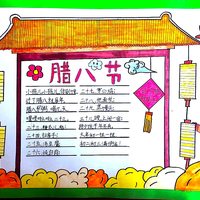 腊八节
小孩儿小孩儿你别馋
过了腊八就是年
腊八粥 喝几天
哩哩啦啦二十三
二十三 糖瓜粘
二十四 扫房子
二十五
二十六
二十七
二十八 把面发
二十九 蒸馒头
三十晚上熬一宿
初一
初二初三满街走